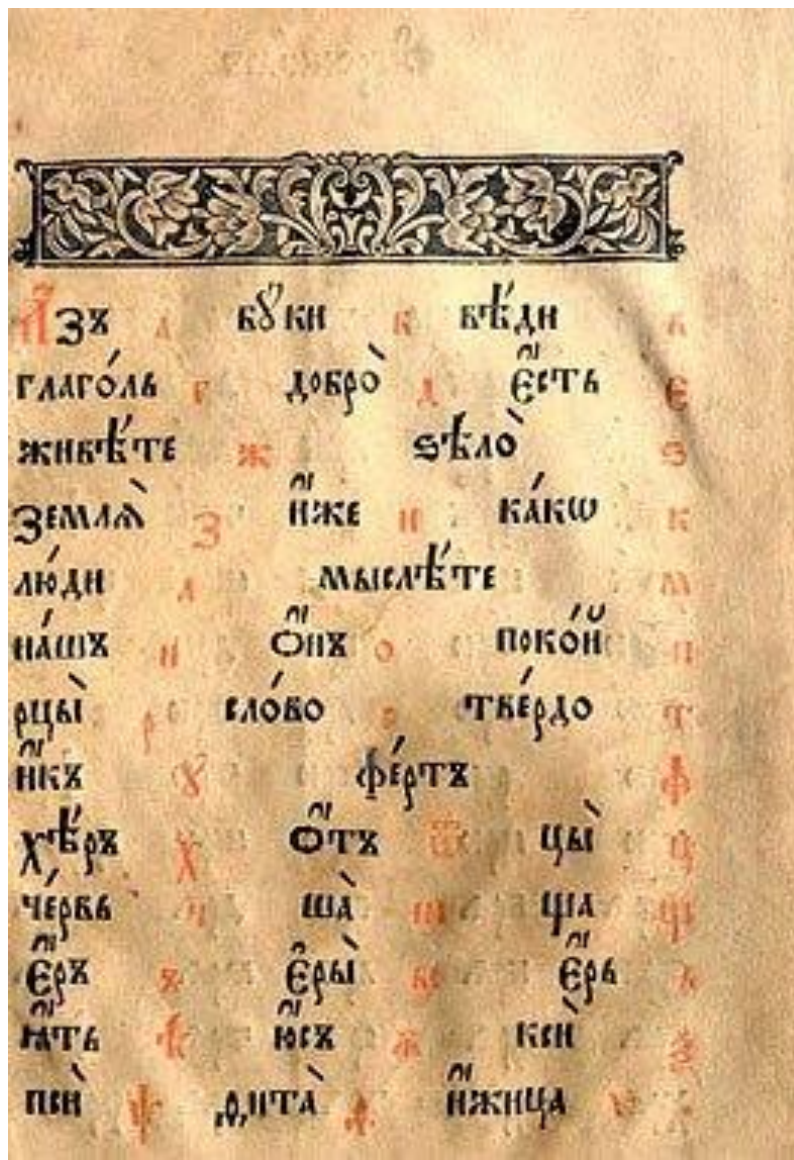 А҆́зъ а бꙋ́ки б вѣ́ди в
глаго́ль г добро̀ д є҆́сть є
живѣ́те ж ѕѣло̀ ѕ
Землѧ̀ з и҆́же и ка́кѡ к
лю́ди л мыслѣ́те м
на́шъ н о҆́нъ о поко́й п
рцы̀ р сло́во с тве́рдо т
и҆́къ ꙋ фе́ртъ ф
хѣ́ръ х ѻ҆́тъ ѿ цы̀ ц
че́рвь ч ша̀ ш ща щ
є҆́ръ ъ є҆ры̀ ы є҆́рь ь
ꙗ҆́ть ѣ ю҆́съ ксѝ ѯ
псѝ ѱ ѳита̀ ѳ и҆́жица ѵ